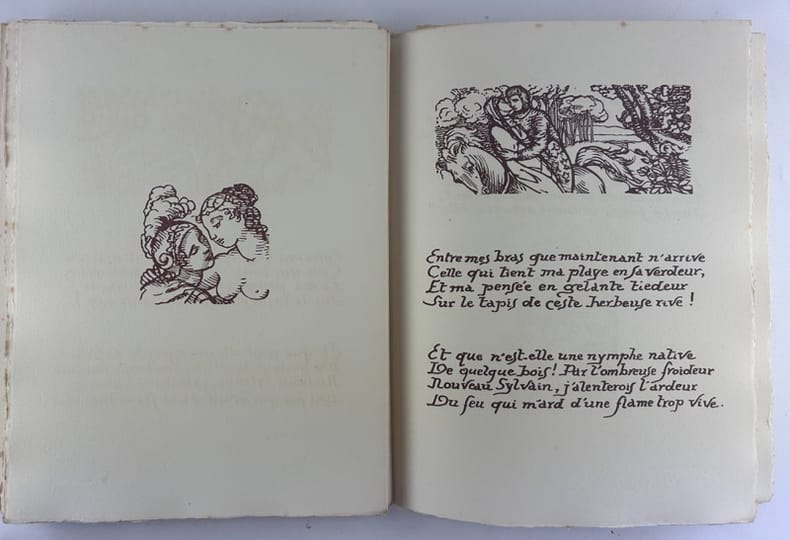 Entre mes bras que maintenant n'arrive
Celle qui tient ma playe en sa verdeur,
Et ma pensée en gelante tiedeur
Sur le tapis de ceste herbeuse rive !
Et que n'est-elle une nymphe native
De quelque bois ! Par l'ombreuse froideur
Nouveau Sylvain, j'alenterois l'ardeur
Du feu qui m'ard d'une flame trop vive.